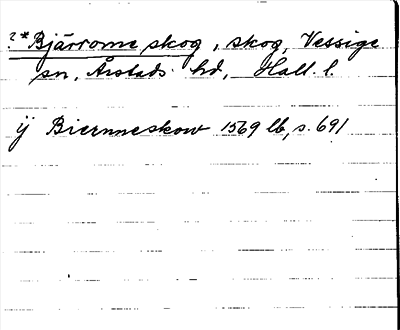 ?*Bjärrome skog, skog, Vessige
sn, Årstads hd, Hall. l.
ij Biernneskow 1569 lb, s. 691